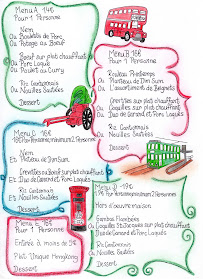 Menu A 14€
Pour 1 Personne
Nem
Ou Boulette de Porc
Ou Potage au Boeuf
Boeuf sur plat chauffant
Ou Porc Laqué
Ou Poulet au Curry
Riz Cantonais
Et Nouilles Sautées
Dessert
Menu B 16€
Pour 1 Personne
Rouleau Printemps
Ou Plateau de Dim Sum
Ou L'assortiment de Beignets
Crevettes sur plat chauffant
Ou Coquilles sur plat chauffant
Ou Duo de Canard et Porc Laqués
Riz Cantonais
Nouilles Sautées
Dessert
Menu C 16€
16€ Par Personne, minimum 2 Personnes
Nem
Et Plateau de Dim Sum
Crevettes ou Boeuf sur plat chauffant
Et Duo de Canard et Porc Laqués
Riz Cantonais
Et Nouilles Sautées
Dessert
Menu D 19€
19€ Par Personne, minimum 2 Personnes
Hors d'oeuvre maison
Gambas Flambées
Ou Coquilles St Jacques sur plat chauffant
Duo de Canard et Porc Laqués
Riz Cantonais
Ou Nouilles Sautées
Dessert
Menu E 16€
Pour 1 Personne
Entrée à moins de 5€
Plat Unique Hongkong
Dessert